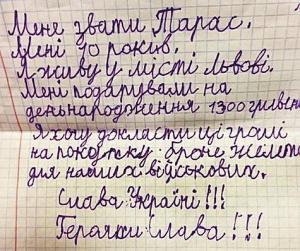 Мене звати Тарас.
Мені 10 років.
Я живу у місті Львові.
Мені подарували на
деньнародження 1300 гривень
Я хочу докласти ці гроші
на покупку броне жилетів
для наших військових.
Слава Україні!!!
Героям Слава!!!